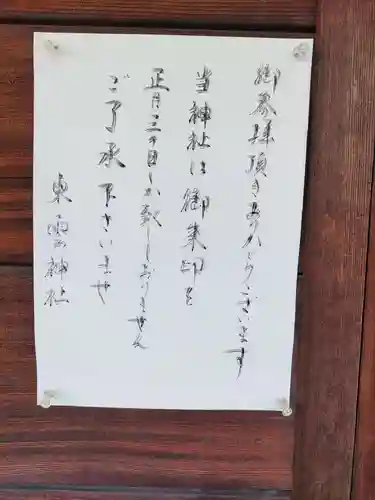 御参拝頂きありがとうございます
当神社は御朱印を
正月三ヶ日しか致しおりません
ご了承下さいませ
東雲神社